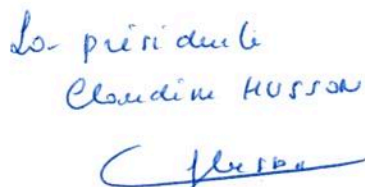 La présidente
Claudine HUSSON
Husson